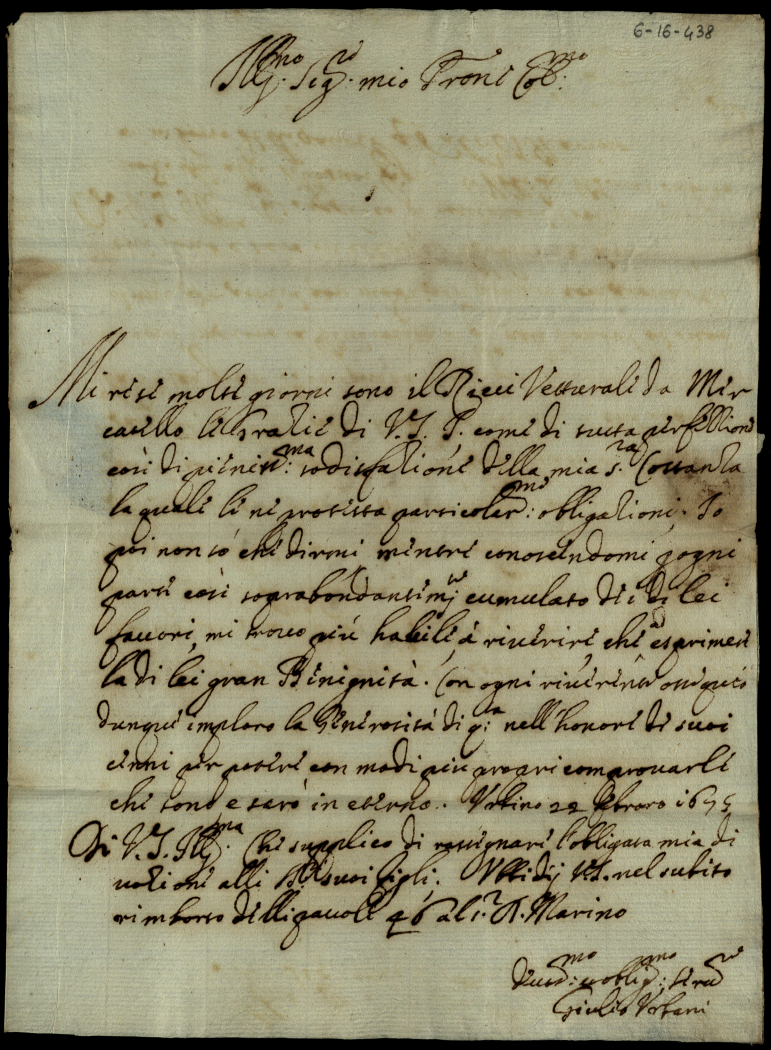 6-16-438
Ill.mo Sig.re mio Prone Col.mo
Mi rese molti giorni sono il Ricci Vetturale da Mer
catello le Grazie di V.S. I. come di tutta perfettione
così di pieniss.ma sodisfatione della mia s.ra Costanza
la quale le ne protesta particolar.me obligationi. Io
poi non sò che dirmi mentre conoscendomi p ogni
parte così soprabondantem.te cumulato de i di lei
fauori, mi trouo più habile à riuerire che ad esprimere
la di lei gran Benignità. Con ogni riuerente ossequio
dunque imploro la Generosità di q.a nell'honore de suoi
cenni per potere con modi più propri comprouarle
che sono e sarò in eterno. Urbino 22 Febraro 1675
Di V.S. Ill.ma Che supplico di rassegnare l'obligata mia di
uotione alli suoi figli. nel subito
rimborso delli pauoli 46 al s.r D. Marino
Deuot.mo et oblig.mo Ser.re
Giulio Urbani